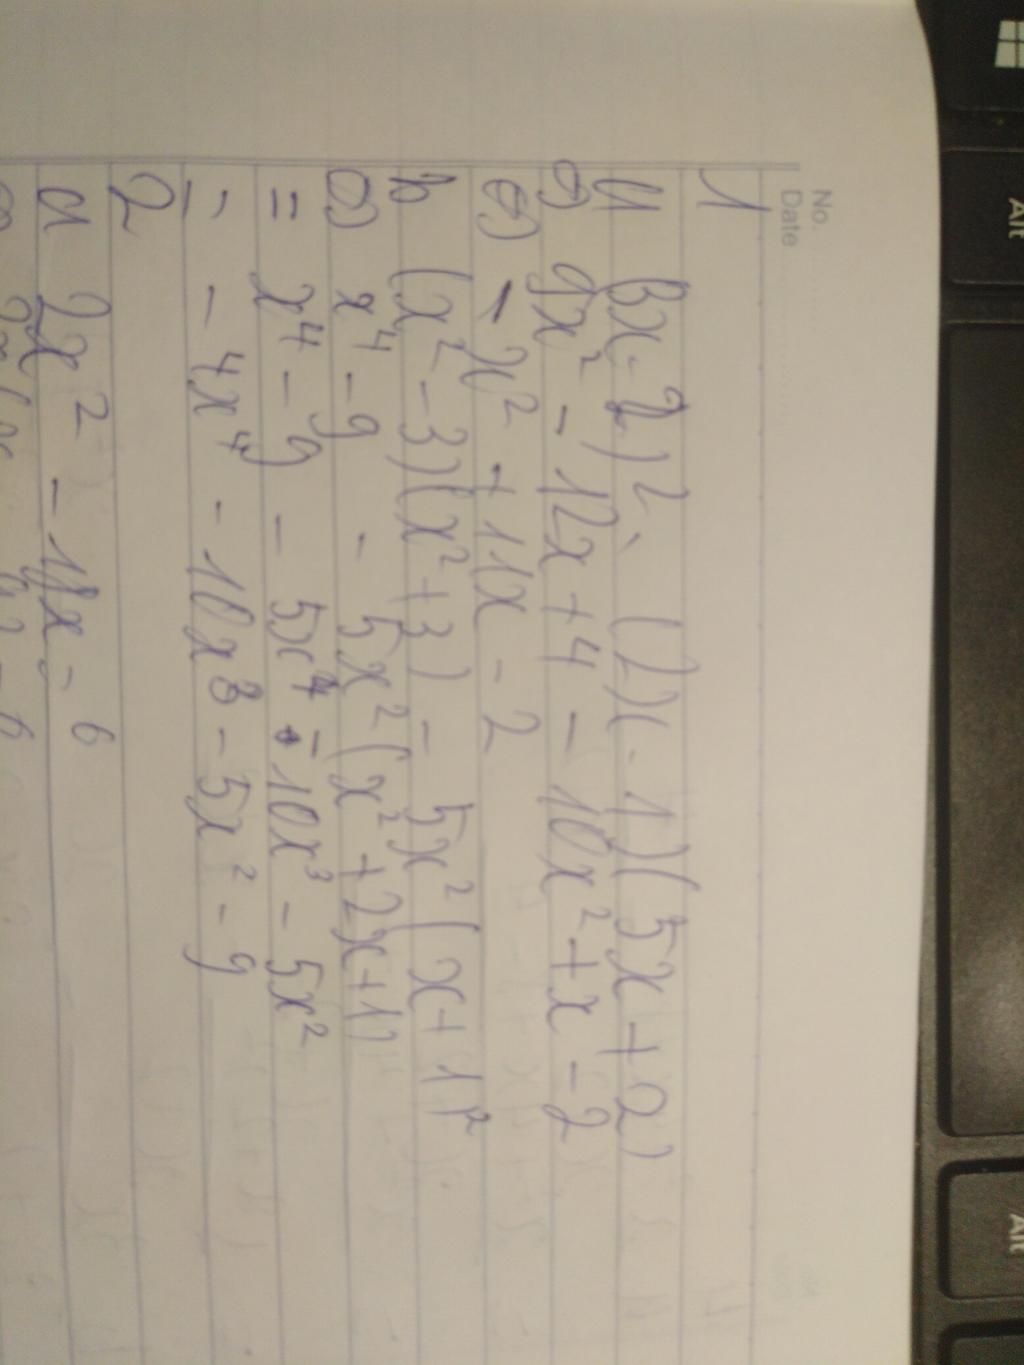 No.
Date
1
a (3x-2)² - (2x-1)(5x+2)
⇔ 9x² - 12x+4 - 10x²+x-2
⇔ -x² + 11x - 2
b (x²-3)(x²+3) - 5x²(x+1)²
⇔ x⁴-9 - 5x²(x²+2x+1)
= x⁴-9 - 5x⁴-10x³-5x²
= -4x⁴ - 10x³-5x²-9
2
a 2x² - 11x-6
Alt
Alt